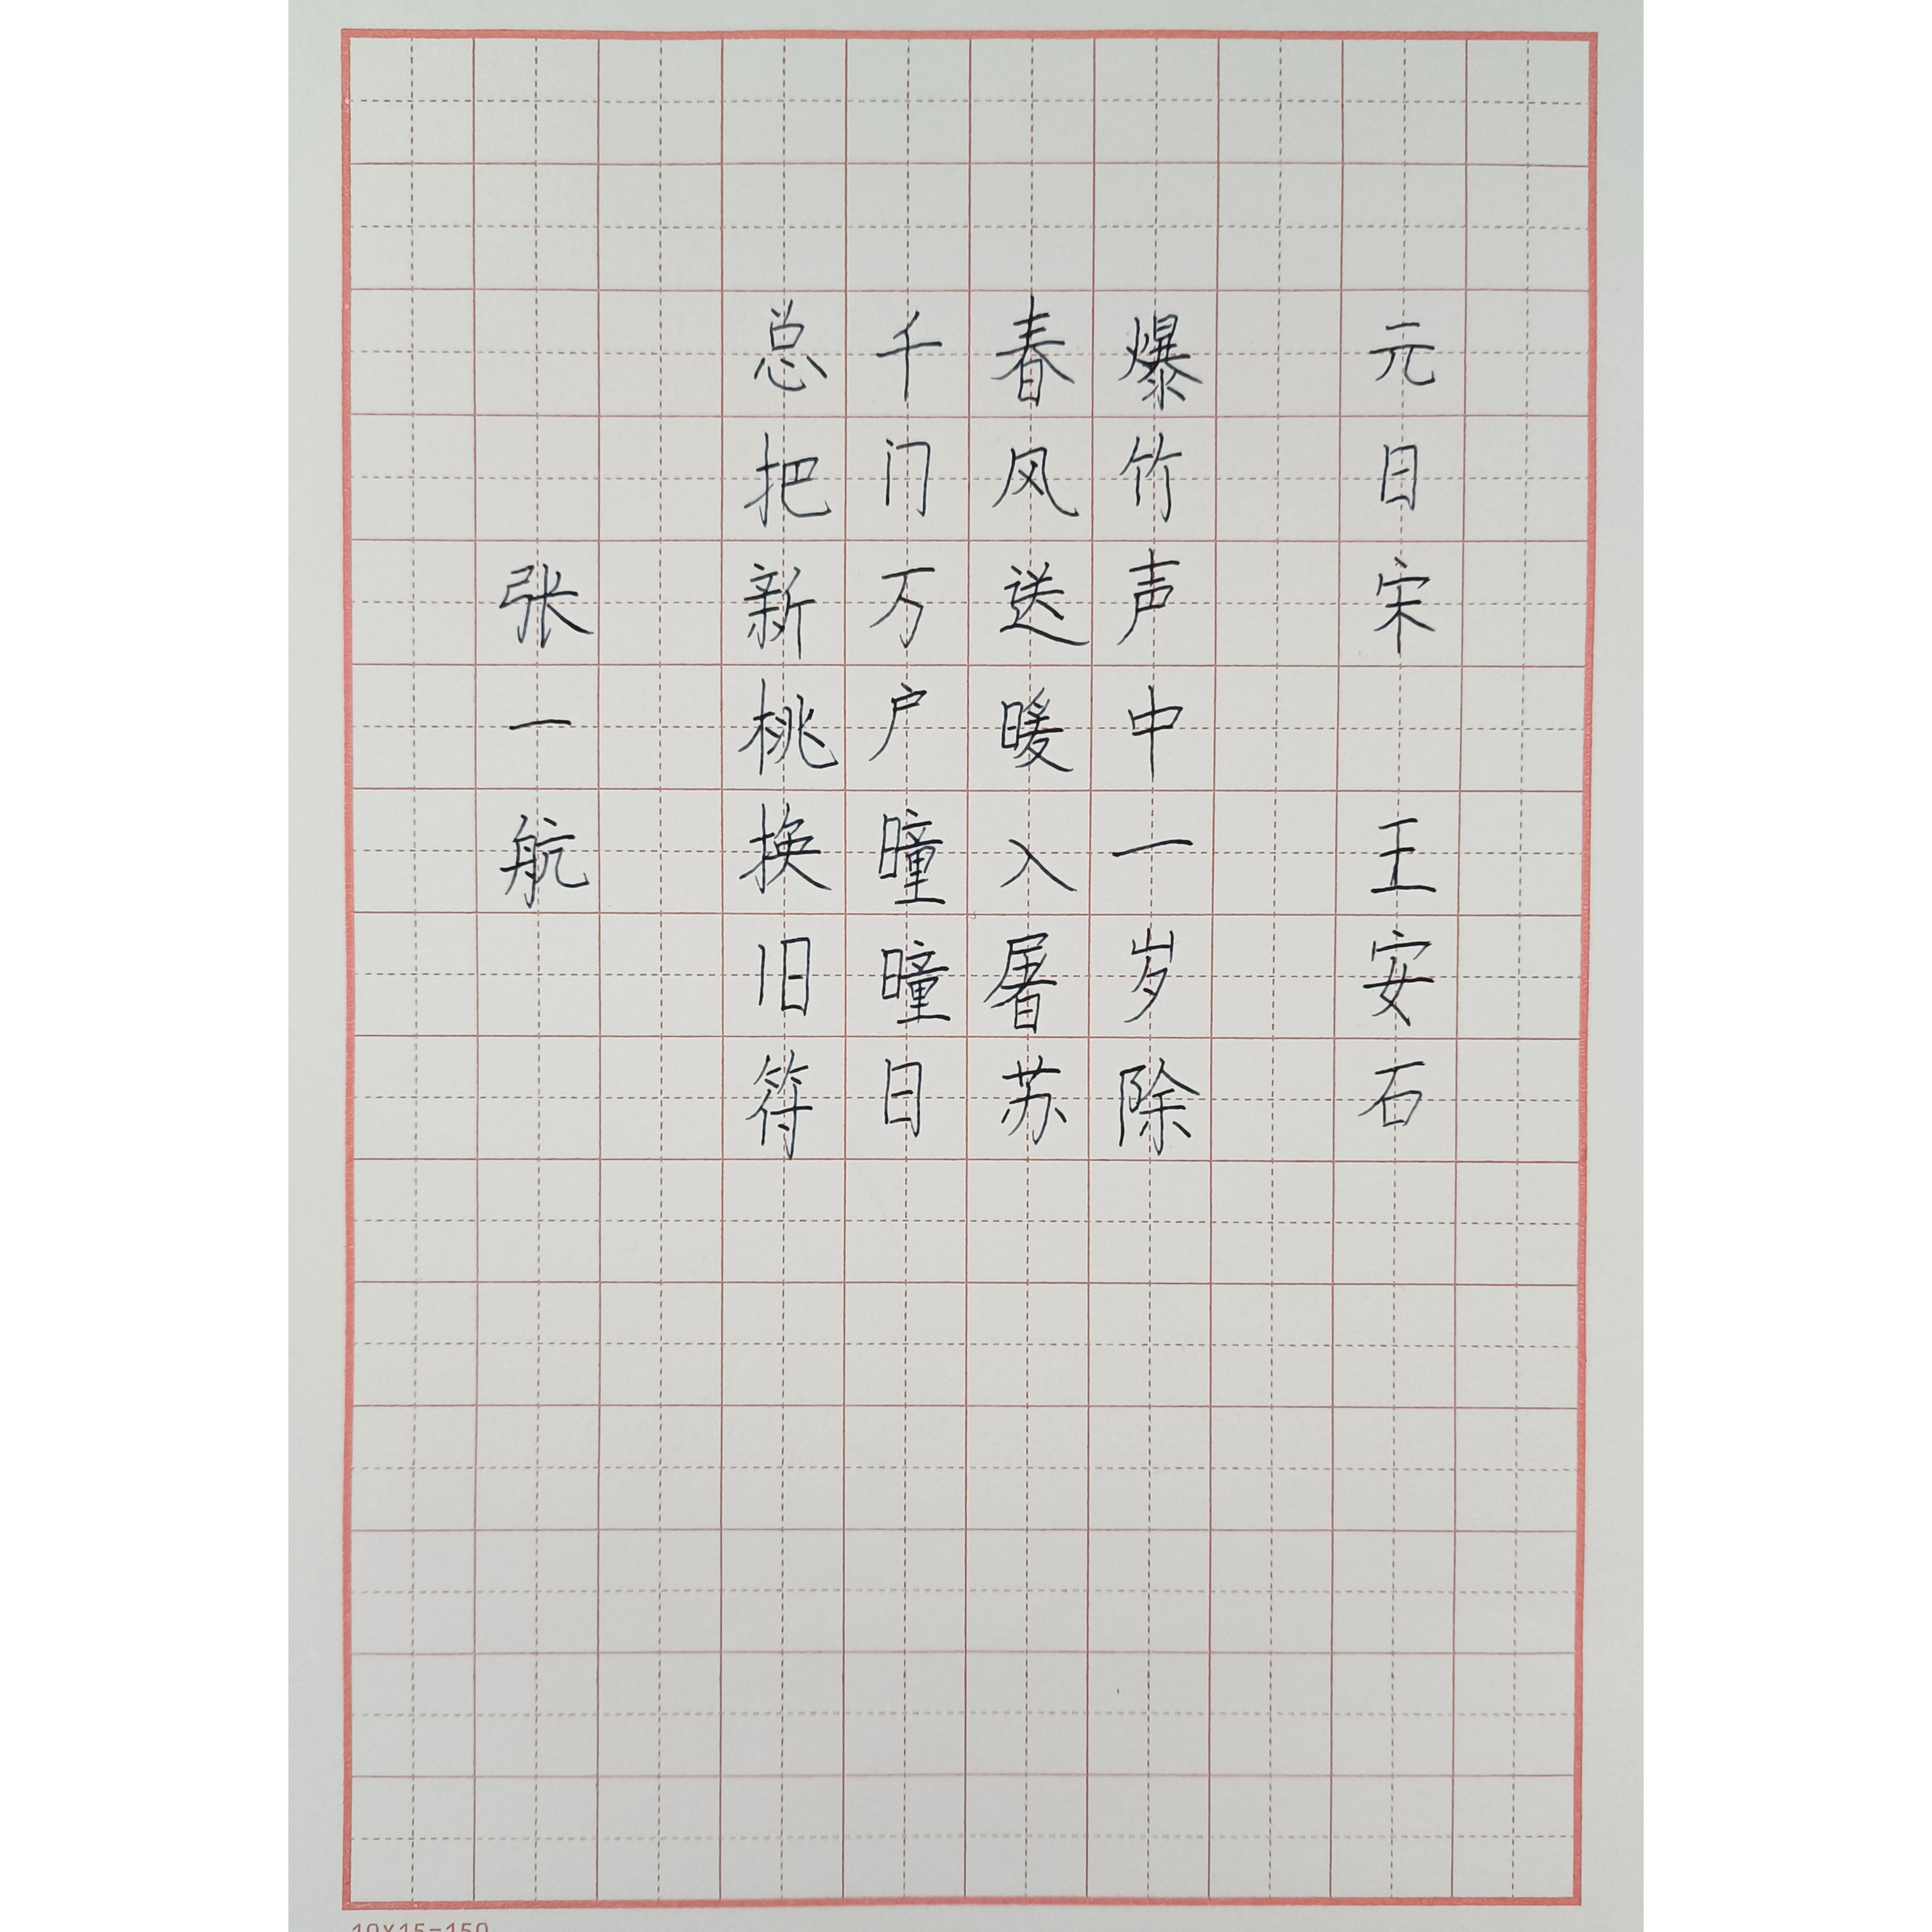 元日宋 王安石
爆竹声中一岁除
春风送暖入屠苏
千门万户曈曈日
总把新桃换旧符
张一航
10×15=150